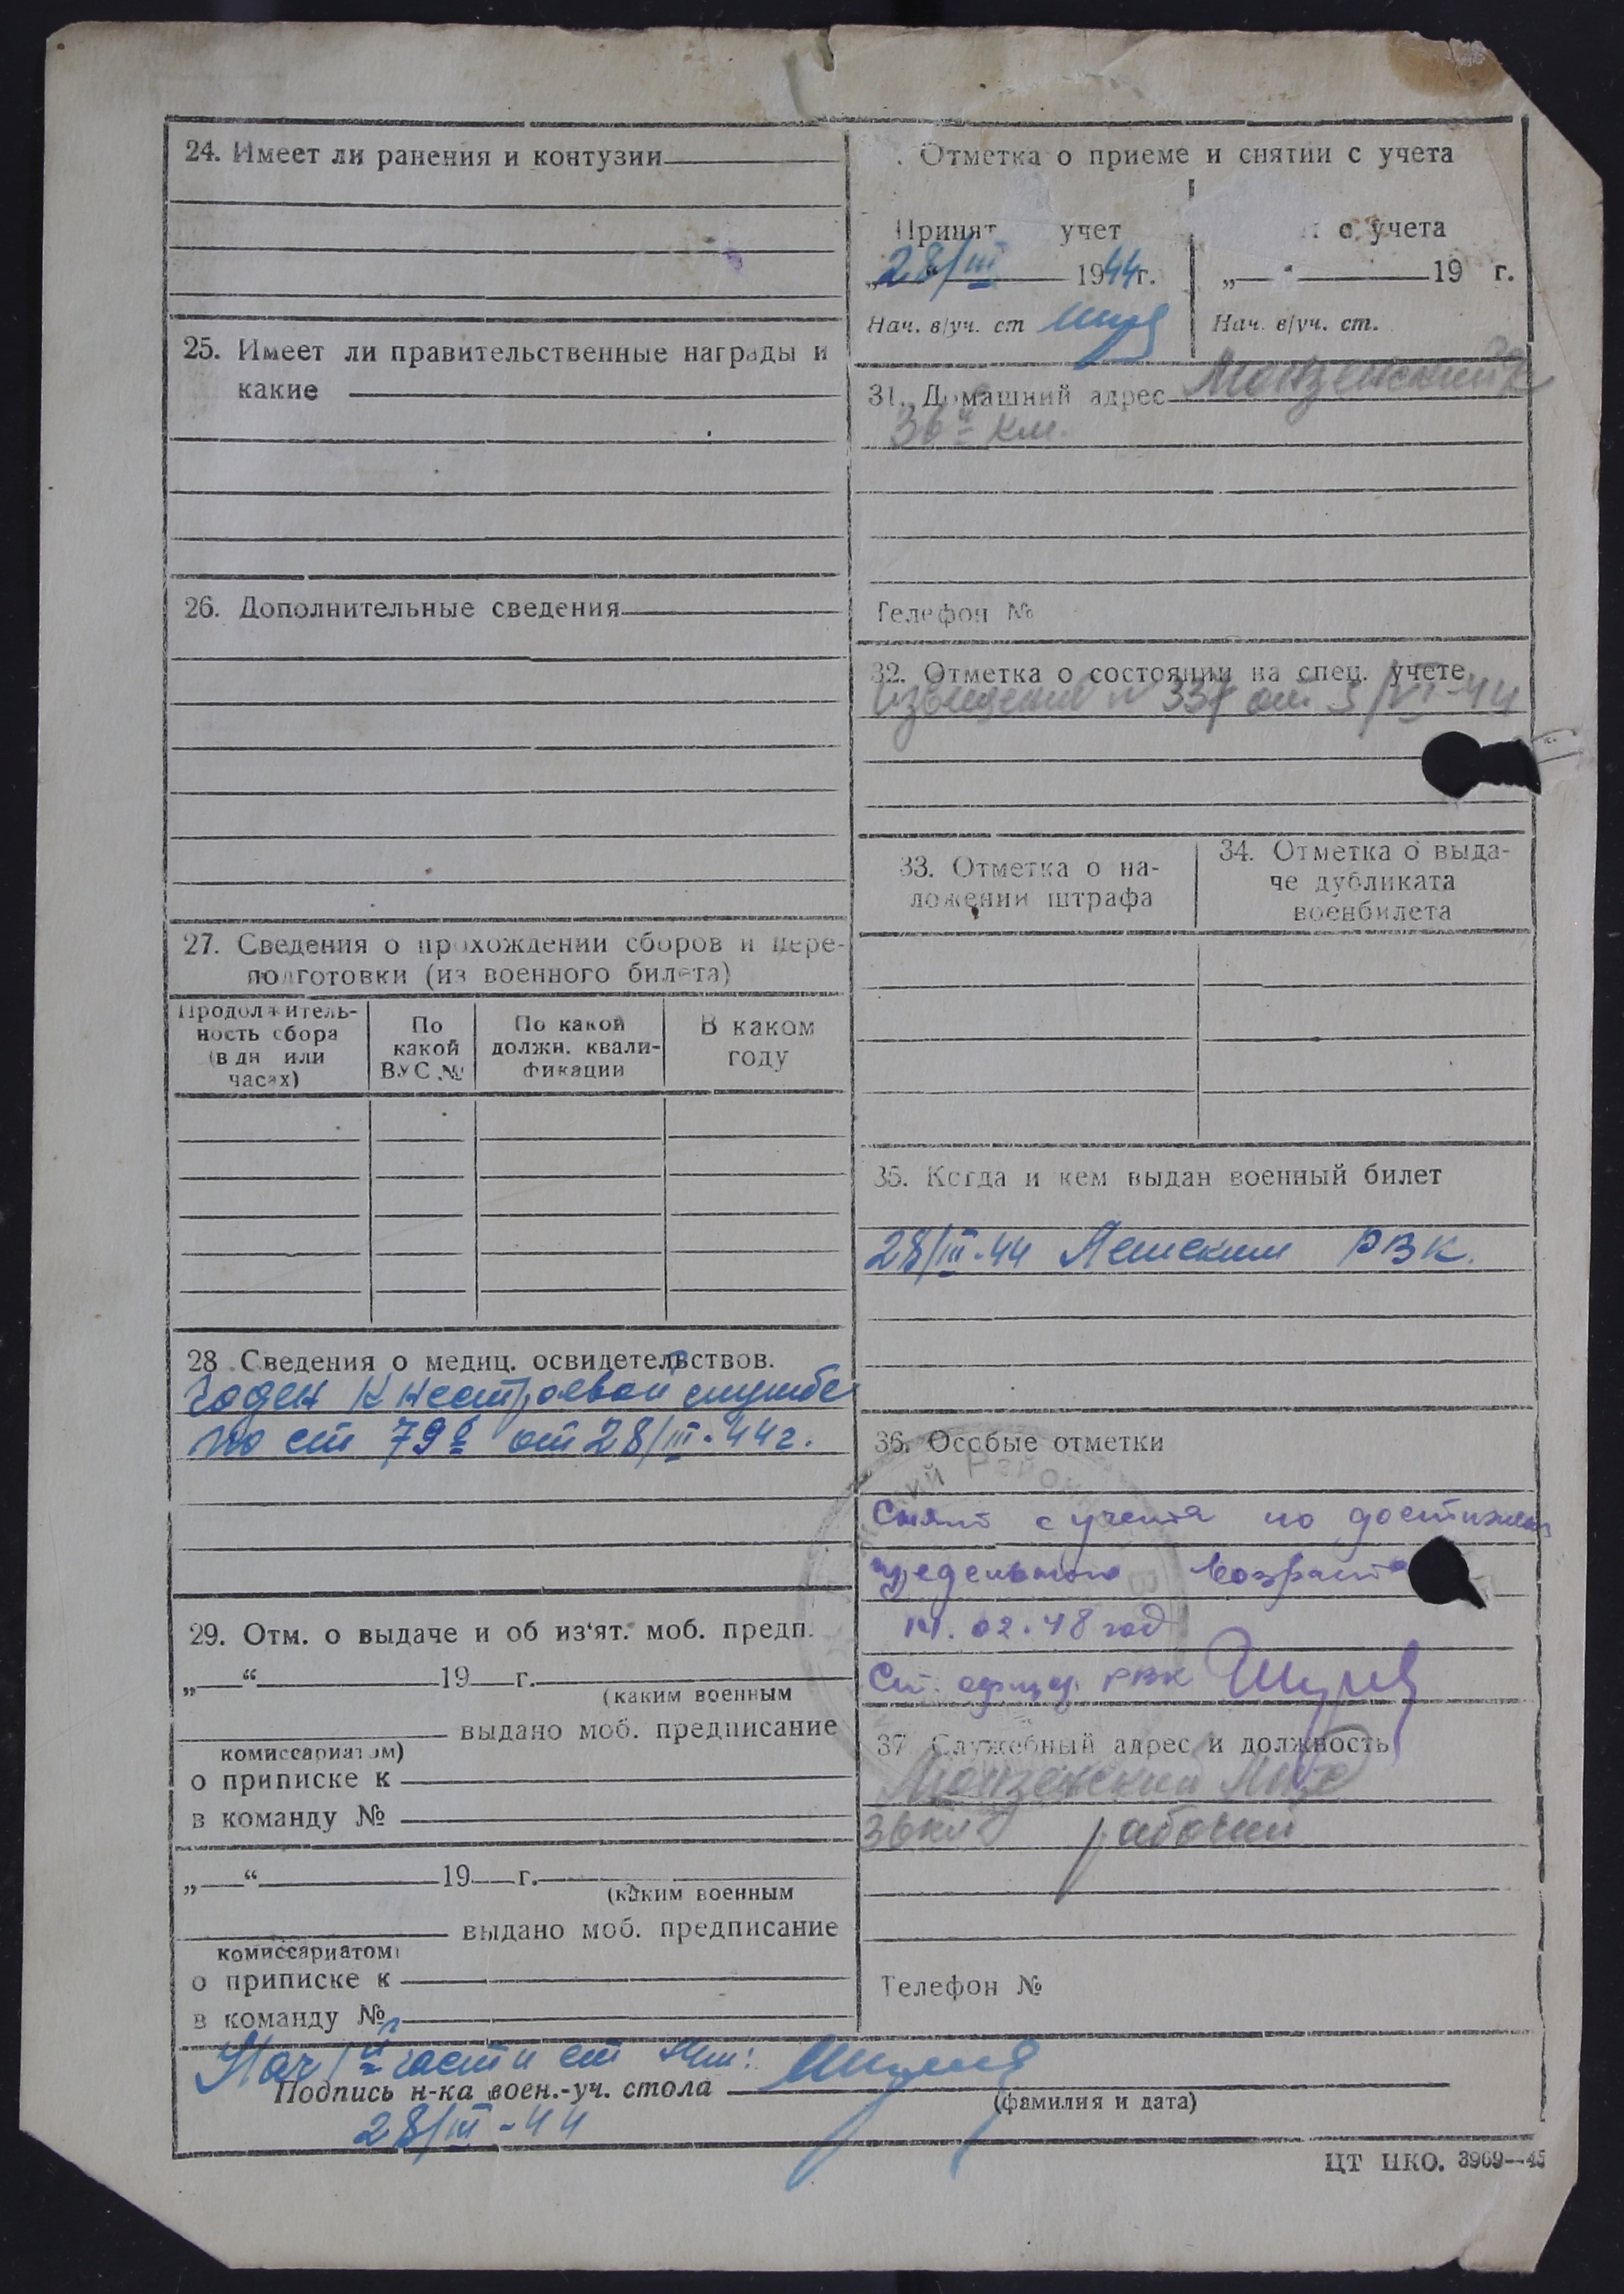 24. Имеет ли ранения и контузии
25. Имеет ли правительственные награды и
какие
26. Дополнительные сведения
27. Сведения о прохождении сборов и пере-
подготовки (из военного билета)
Продолжитель-
ность сбора
(в дн или
часах)
По
какой
ВУС №
По какой
должн. квали-
фикации
В каком
году
28 Сведения о медиц. освидетельствов.
Годен к нестроевой службе
по ст 79б от 28/III-44г.
29. Отм. о выдаче и об из‘ят. моб. предп.
„ “ 19 г.
(каким военным
выдано моб. предписание
комиссариатом)
о приписке к
в команду №
„ “ 19 г.
(каким военным
выдано моб. предписание
комиссариатом)
о приписке к
в команду №
Отметка о приеме и снятии с учета
Принят учет
28/III 1944г.
Нач. в/уч. ст
с учета
„ “ 19 г.
Нач. в/уч. ст.
31. Домашний адрес Монзенский
36й км.
Телефон №
32. Отметка о состоянии на спец. учете
от 5/VI-44
33. Отметка о на-
ложении штрафа
34. Отметка о выда-
че дубликата
военбилета
35. Когда и кем выдан военный билет
28/III-44 РВК.
36. Особые отметки
Снят с учета по достижен
предельного возраста
14.02.48 год
Ст. офицер РВК
37. Служебный адрес и должность
Монзенский
36км рабочий
Телефон №
Нач 1й части ст
Подпись н-ка воен.-уч. стола
(фамилия и дата)
28/III-44
ЦТ НКО. 3969—45